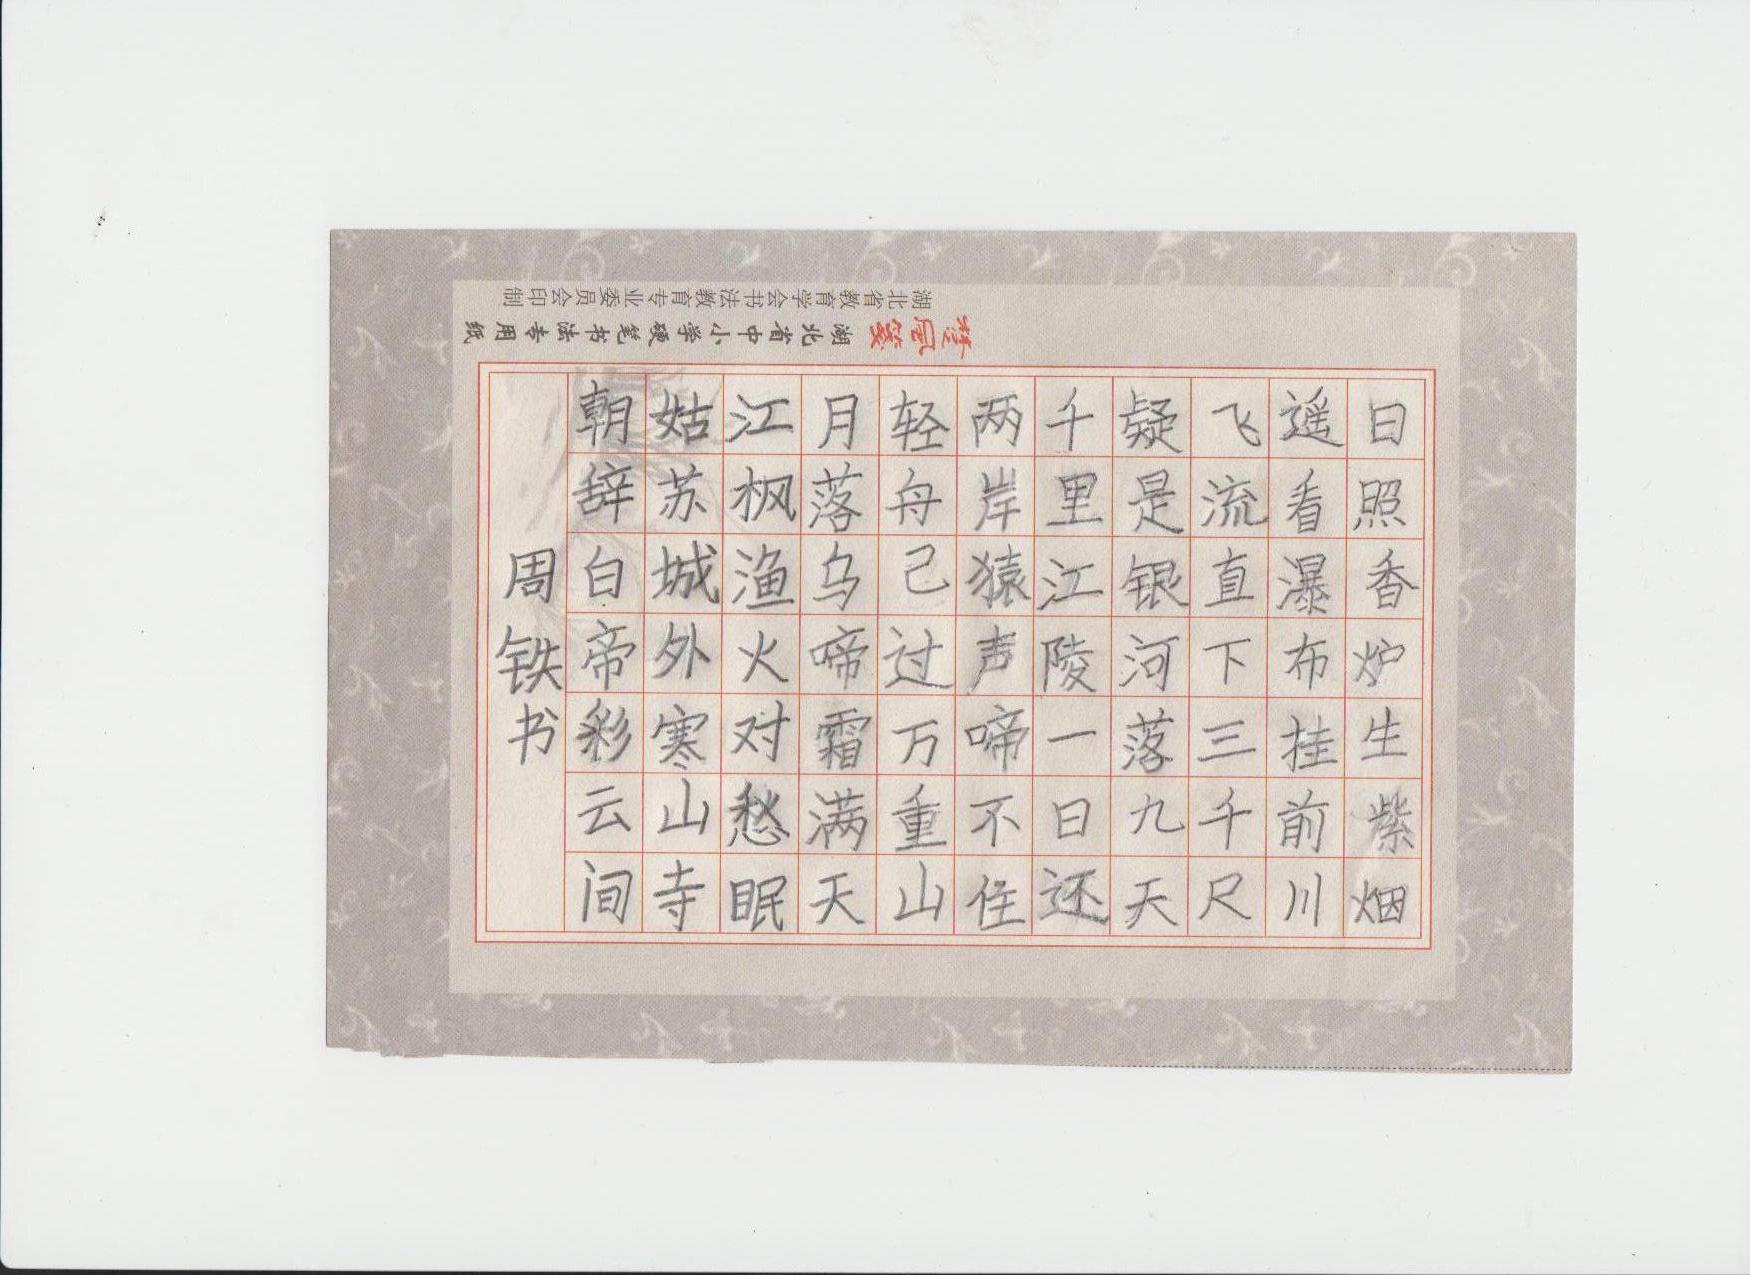 日照香炉生紫烟
遥看瀑布挂前川
飞流直下三千尺
疑是银河落九天
千里江陵一日还
两岸猿声啼不住
轻舟己过万重山
月落乌啼霜满天
江枫渔火对愁眠
姑苏城外寒山寺
朝辞白帝彩云间
周铁书
楚风笺 湖北省中小学硬笔书法专用纸
湖北省教育学会书法教育专业委员会印制